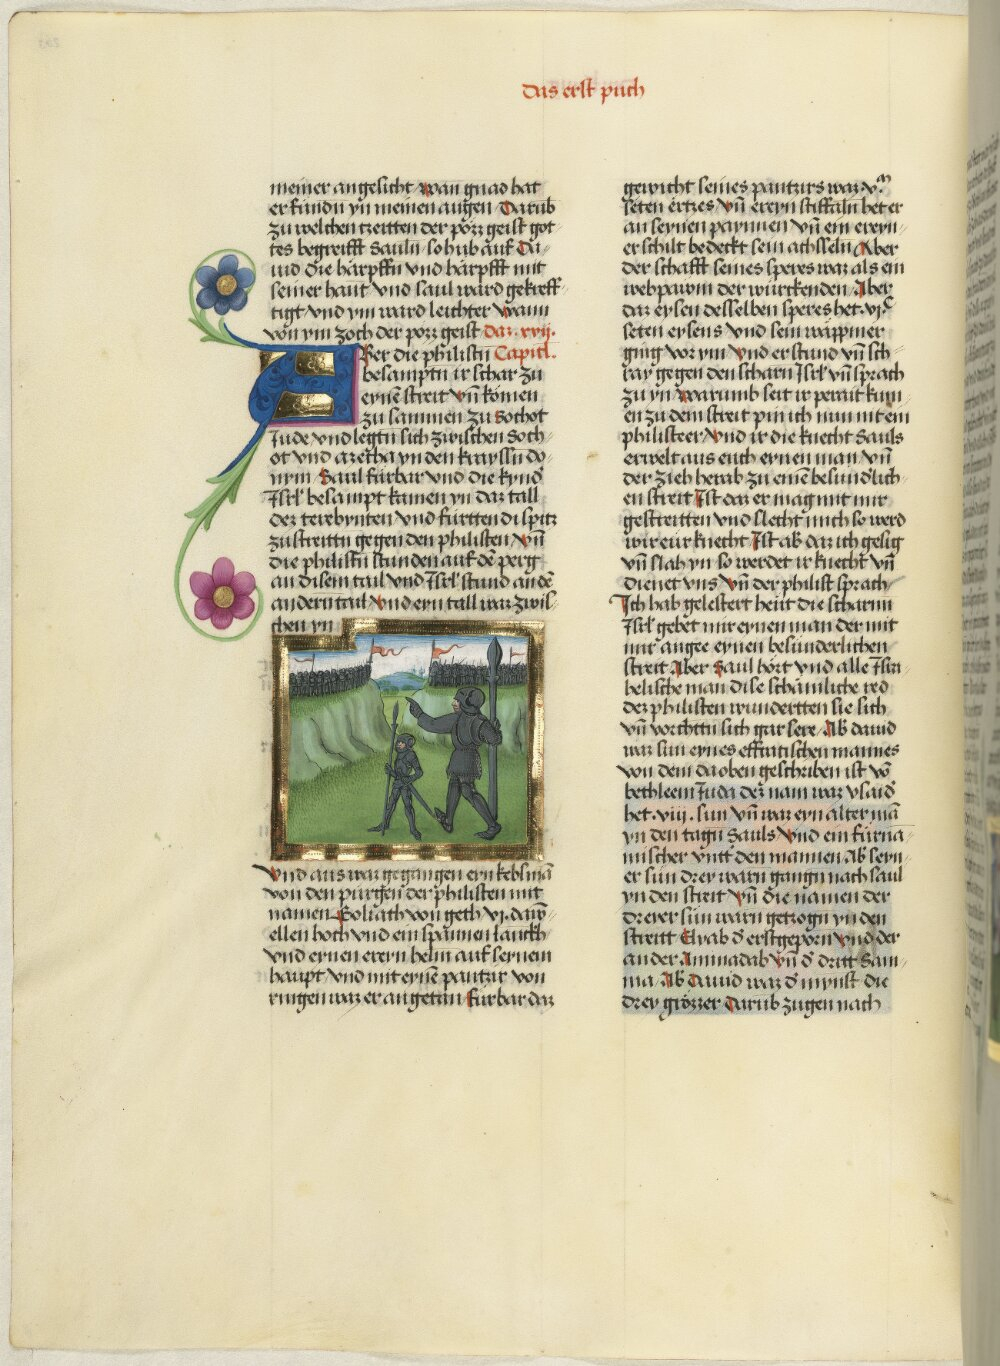 Das erst puch
meiner angesicht wan gnad hat
er fundn yn meinen augen Darub
zu welchen tzeitten der pözz geist got
tes begreifft Sauln so hub auf Da
uid die härpffn vnd härpfft mit
seiner hant vnd saul ward gekreff
tigt vnd ym ward leichter Wann
von ym zoch der pozz geist daz .xvij.
Aber die philistn Capitl.
besamptn ir schar zu
eynē streit vn̄ kömen
zu sammen zu Sochot
Jude vnd legtn sich zwischen Soch
ot vnd azecha yn den krayssn do
nym Saul fürbar vnd die kynd
Isrl̄ besampt kamen yn daz tall
dez terebynten vnd fürtten di spitz
zu streittn gegen den philisten vn̄
die philistn stunden auf dē perg
an disem tail vnd Isrl̄ stund an dē
andern tail vnd eyn tall waz zwis
chen yn
Vnd aus waz gegangen eyn kebsmā
von den pürgen der philisten mit
namen Goliath von geth vj. dawm
ellen hoch vnd ein spannen lanckh
vnd eynen erein helm auf seynem
haupt vnd mit eynē pantzir von
ringen waz er angetan fürbar daz
gewicht seines pantzirs waz v.m
seten ertzes vn̄ ereyn stiffaln het er
an seynen paynnen vn̄ ein ereyn
er schilt bedeckt sein achsseln Aber
der schafft seines speres waz als ein
webpawm der würckenden Aber
daz eysen desselben speres het .vj.c
seten eysens vnd sein wappiner
ging vor ym vnd er stund vn̄ sch
ray gegen den scharn Isrl̄ vn̄ sprach
zu yn Warumb seit ir perait kum
en zu dem streit pin ich nun nit ein
philisteer vnd ir die knecht Sauls
erwelt aus euch eynen man vn̄
der zieh herab zu einē besundlich
en streit Ist daz er mag mit mir
gestreitten vnd slecht mich so werd
wir eur knecht Ist ab daz ich gesig
vn̄ slah yn so werdet ir knecht vn̄
dienet vns vn̄ der philist sprach
Ich hab gelestert heut die scharnn
Isrl̄ gebet mir eynen man der mit
mir angee eynen besünderlichen
streit Aber Saul hört vnd alle Isra
helische man dise schämliche red
dez philisten wundertten sie sich
vn̄ vorchttn sich gar sere Ab dauid
waz sun eynes effratischen mannes
von dem da oben geschriben ist vō
bethleem Juda dez nam waz ysaid
het .viij. sun vn̄ waz eyn alter mā
yn den tagn Sauls vnd ein fürna
mischer vntt den mannen Ab seyn
er sun drey warn gangn nach saul
yn den streit vn̄ die namen der
dreyer sun warn getzogn yn den
streitt Elyab d̄ erstgeporn vnd der
ander Aminadab vn̄ d̄ dritt Sam
ma Ab Dauid waz d̄ mynst die
drey grözzer Darub zugen nach